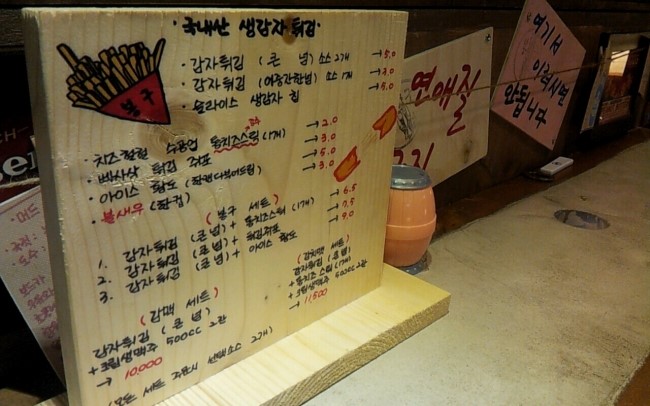 · 국내산 생감자 튀김
봉구
· 감자튀김 (큰 넘) 소스 2개 → 5.0
· 감자튀김 (어중간한넘) 소스 1개 → 4.0
· 슬라이스 생감자 칩 → 5.0
· 치즈함량 수공업 통치즈스틱 (1개) → 2.0
· 빼사삭 튀김 쥐포 → 3.0
· 아이스 황도 → 5.0
· 불새우 (한컵) → 3.0
( 봉구 세트 )
1. 감자튀김 (큰넘) + 통치즈스틱 (1개) → 6.5
2. 감자튀김 (큰넘) + 튀김쥐포 → 7.5
3. 감자튀김 (큰넘) + 아이스 황도 → 9.0
( 감맥 세트 )
감자튀김 ( 큰 넘 )
+ 크림생맥주 500CC 2잔
→ 10,000
( 감치맥 세트 )
감자튀김 (큰넘)
+ 통치즈스틱 (1개)
+ 크림생맥주 500CC 2잔
→ 11,500
(모든 세트 주문시 선택소스 2개)
연애질
금지
여기서
이러시면
안됩니다